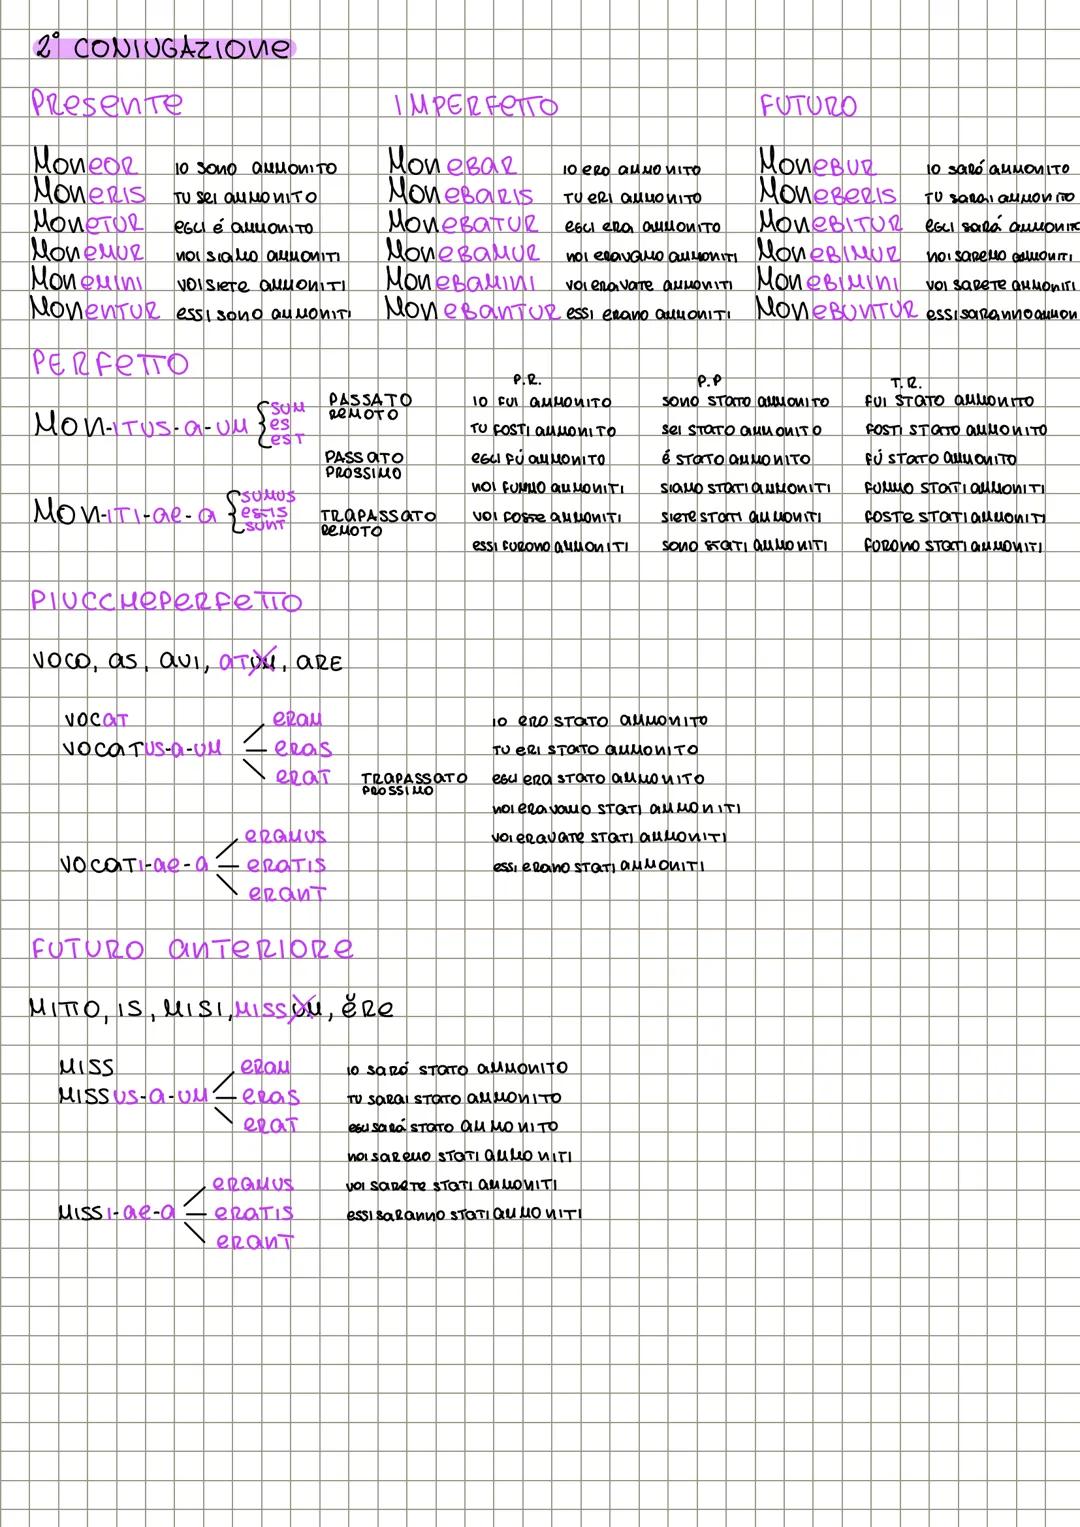 2° CONIUGAZIONE
PRESENTE IMPERFETTO FUTURO
MONEOR IO SONO AMMONITO MONEBAR IO ERO AMMONITO MONEBUR IO SARÓ AMMONITO
MONERIS TU SEI AMMONITO MONEBARIS TU ERI AMMONITO MONEBERIS TU SARAI AMMONITO
MONETUR EGLI É AMMONITO MONEBATUR EGLI ERA AMMONITO MONEBITUR EGLI SARÁ AMMONITO
MONEMUR NOI SIAMO AMMONITI MONEBAMUR NOI ERAVAMO AMMONITI MONEBIMUR NOI SAREMO AMMONITI
MONEMINI VOI SIETE AMMONITI MONEBAMINI VOI ERAVATE AMMONITI MONEBIMINI VOI SARETE AMMONITI
MONENTUR ESSI SONO AMMONITI MONEBANTUR ESSI ERANO AMMONITI MONEBUNTUR ESSI SARANNO AMMON
PERFETTO
P.R. P.P T.R.
SUM PASSATO REMOTO IO FUI AMMONITO SONO STATO AMMONITO FUI STATO AMMONITO
MON-ITUS-A-UM ES TU FOSTI AMMONITO SEI STATO AMMONITO FOSTI STATO AMMONITO
EST PASSATO PROSSIMO EGLI FÚ AMMONITO É STATO AMMONITO FÚ STATO AMMONITO
SUMUS NOI FUMMO AMMONITI SIAMO STATI AMMONITI FUMMO STATI AMMONITI
MON-ITI-AE-A ESTIS TRAPASSATO REMOTO VOI FOSTE AMMONITI SIETE STATI AMMONITI FOSTE STATI AMMONITI
SUNT ESSI FURONO AMMONITI SONO STATI AMMONITI FORONO STATI AMMONITI
PIUCCHEPERFETTO
VOCO, AS, AVI, ATUM, ARE
VOCAT ERAM IO ERO STATO AMMONITO
VOCATUS-A-UM ERAS TU ERI STATO AMMONITO
ERAT TRAPASSATO PROSSIMO EGLI ERA STATO AMMONITO
NOI ERAVAMO STATI AMMONITI
ERAMUS VOI ERAVATE STATI AMMONITI
VOCATI-AE-A ERATIS ESSI ERANO STATI AMMONITI
ERANT
FUTURO ANTERIORE
MITTO, IS, MISI, MISSUM, ĔRE
MISS ERAM IO SARÓ STATO AMMONITO
MISSUS-A-UM ERAS TU SARAI STATO AMMONITO
ERAT EGLI SARÁ STATO AMMONITO
NOI SAREMO STATI AMMONITI
ERAMUS VOI SARETE STATI AMMONITI
MISSI-AE-A ERATIS ESSI SARANNO STATI AMMONITI
ERANT